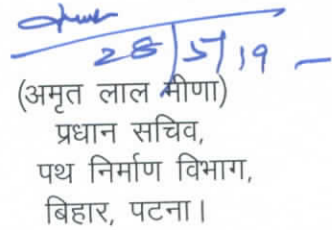 28/5/19
(अमृत लाल मीणा)
प्रधान सचिव,
पथ निर्माण विभाग,
बिहार, पटना।